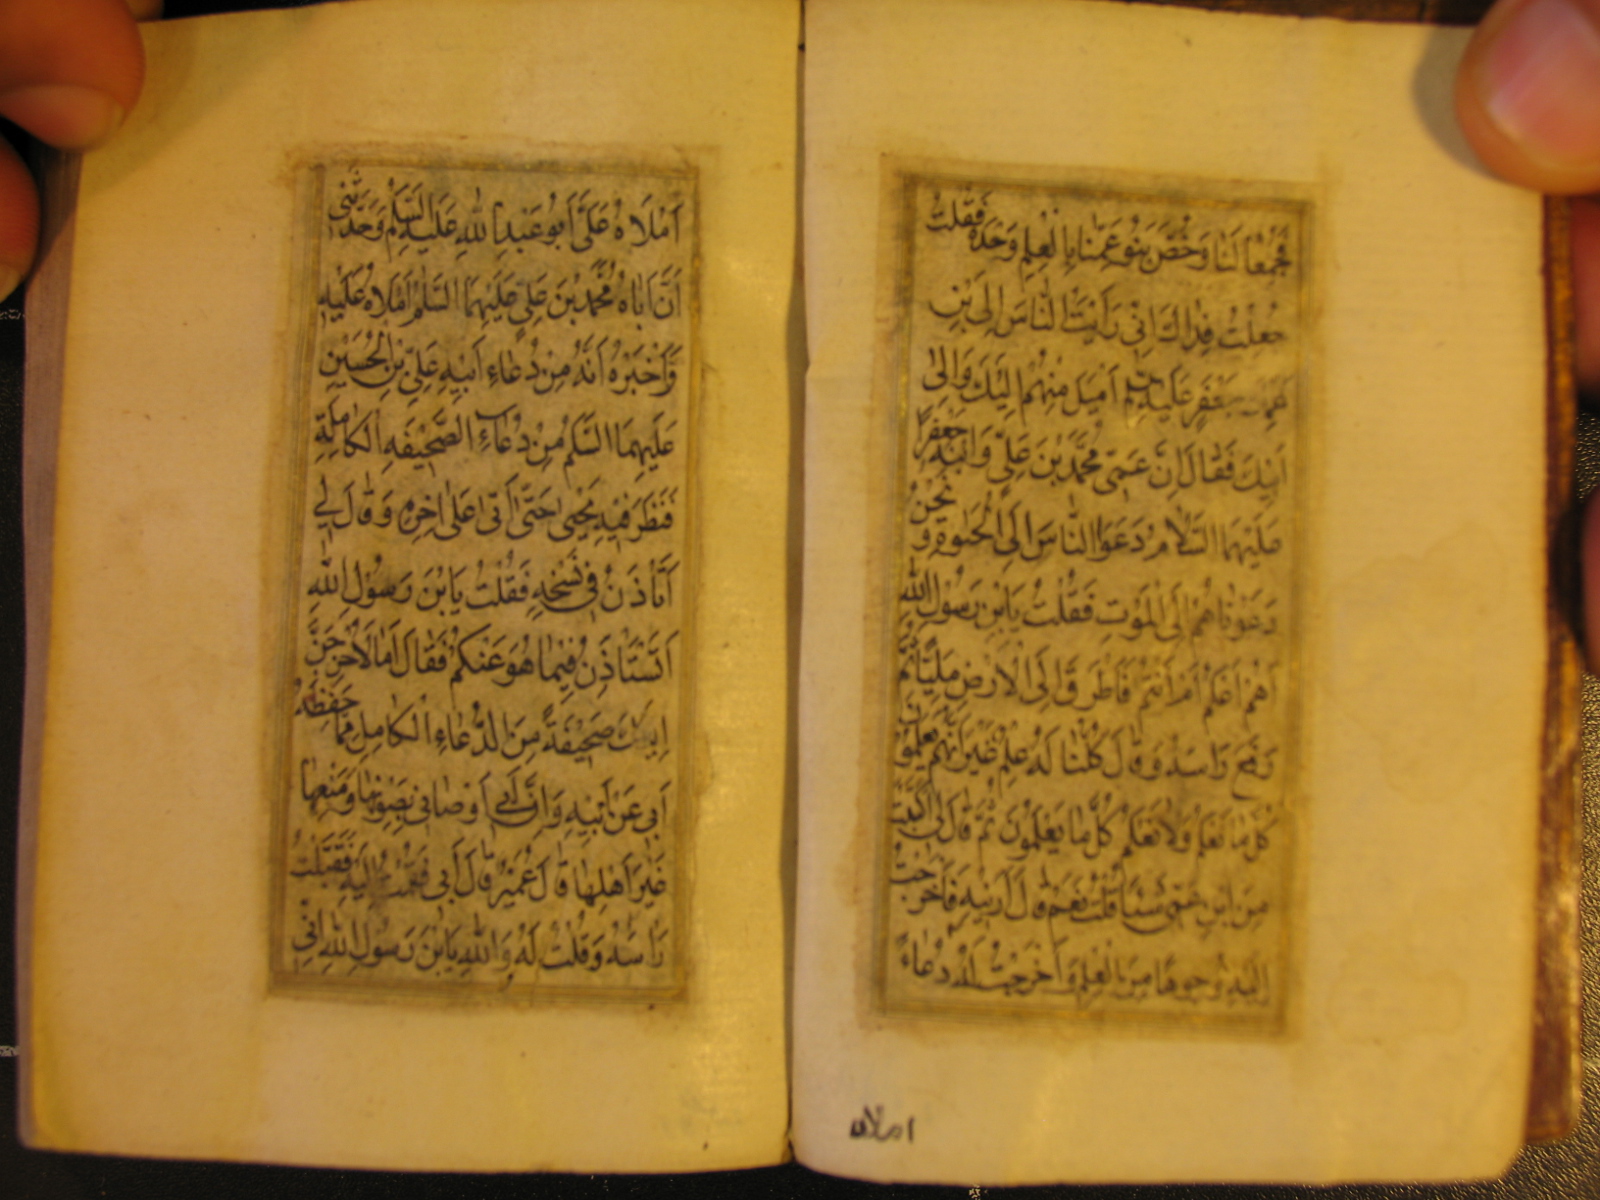 فَجُمِعَا لَنَا وَخُصَّ بَنُو عَمِّنَا بِالْعِلْمِ وَحْدَهُ فَقُلْتُ
جُعِلْتُ فِدَاكَ اِنّى رَاَيْتُ النَّاسَ اِلَى ابْنِ
عَمِّكَ جَعْفَرٍ عَلَيْهِ اَمْيَلَ مِنْهُمْ اِلَيْكَ وَاِلٰى
اَبِيكَ فَقَالَ اِنَّ عَمّى مُحَمَّدَ بْنَ عَلِىٍّ وَابْنَهُ جَعْفَرًا
عَلَيْهِمَا السَّلَامُ دَعَوَا النَّاسَ اِلَى الْحَيٰوةِ وَنَحْنُ
دَعَوْنَاهُمْ اِلَى الْمَوْتِ فَقُلْتُ يَا بْنَ رَسُولِ اللهِ
اَهُمْ اَعْلَمُ اَمْ اَنْتُمْ فَاَطْرَقَ اِلَى الْاَرْضِ مَلِيًّا ثُمَّ
رَفَعَ رَاْسَهُ وَقَالَ كُلُّنَا لَهُ عِلْمٌ غَيْرَ اَنَّهُمْ يَعْلَمُونَ
كُلَّ مَا نَعْلَمُ وَلَا نَعْلَمُ كُلَّ مَا يَعْلَمُونَ ثُمَّ قَالَ لى اَكَتَبْتَ
مِنِ ابْنِ عَمّى شَيْئًا قُلْتُ نَعَمْ قَالَ اَرِنِيهِ فَاَخْرَجْتُ
اِلَيْهِ وُجُوهًا مِنَ الْعِلْمِ وَاَخْرَجْتُ لَهُ دُعَاءً
املاه
اَمْلَاهُ عَلَىَّ اَبُو عَبْدِ اللهِ عَلَيْهِ السَّلٰمُ وَحَدَّثَنى
اَنَّ اَبَاهُ مُحَمَّدَ بْنَ عَلِىٍّ عَلَيْهِمَا السَّلٰمُ اَمْلَاهُ عَلَيْهِ
وَاَخْبَرَهُ اَنَّهُ مِنْ دُعَاءِ اَبِيهِ عَلِىِّ بْنِ الْحُسَيْنِ
عَلَيْهِمَا السَّلٰمُ مِنْ دُعَاءِ الصَّحِيفَةِ الْكَامِلَةِ
فَنَظَرَ فِيهِ يَحْيٰى حَتّٰى اَتٰى عَلٰى اٰخِرِهِ وَقَالَ لِي
اَتَاْذَنُ فِى نَسْخِهِ فَقُلْتُ يَا بْنَ رَسُولِ اللهِ
اَتَسْتَاْذِنُ فِيمَا هُوَ عَنْكُمْ فَقَالَ اَمَا لَاُخْرِجَنَّ
اِلَيْكَ صَحِيفَةً مِنَ الدُّعَاءِ الْكَامِلِ مِمَّا حَفِظَهُ
اَبى عَنْ اَبِيهِ وَاِنَّ اَبِي اَوْصَانى بِصَوْنِهَا وَمَنْعِهَا
غَيْرَ اَهْلِهَا قَالَ عُمَيْرٌ قَالَ اَبى فَقُمْتُ اِلَيْهِ فَقَبَّلْتُ
رَاْسَهُ وَقُلْتُ لَهُ وَاللهِ يَا بْنَ رَسُولِ اللهِ اِنّى